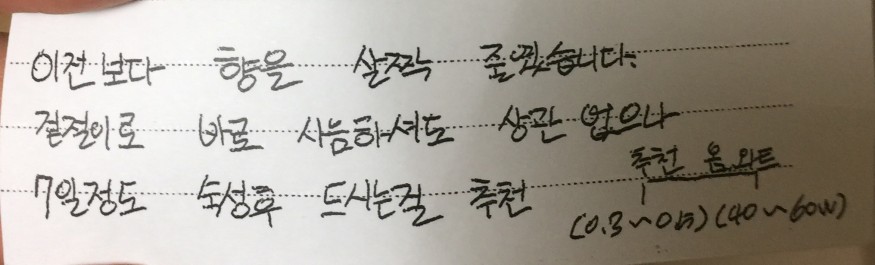 이전보다 향을 살짝 줄였습니다.
겉절이로 바로 시음하셔도 상관 없으나
7일정도 숙성후 드시는걸 추천
추천 옴.와트
(0.3~0.5) (40~60w)